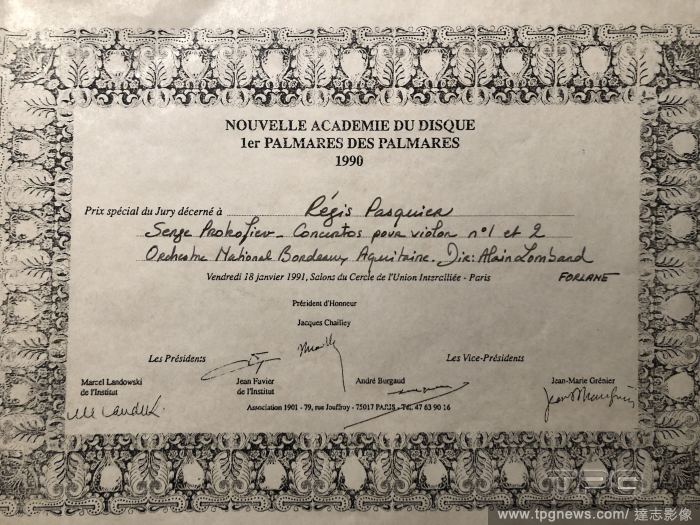 NOUVELLE ACADEMIE DU DISQUE
1er PALMARES DES PALMARES
1990
Prix spécial du Jury décerné à Régis Pasquier
Serge Prokofiev - Concertos pour violon n°1 et 2
Orchestre National Bordeaux Aquitaine. Dir: Alain Lombard
Vendredi 18 janvier 1991, Salons du Cercle de l'Union Interalliée - Paris FORLANE
Président d'Honneur
Jacques Chailley
Les Présidents Les Vice-Présidents
Marcel Landowski Jean Favier André Burgaud Jean-Marie Grénier
de l'Institut de l'Institut
Association 1901 - 79, rue Jouffroy - 75017 PARIS - Tél. 47 63 90 16
TPG
www.tpgnews.com/ 達志影像